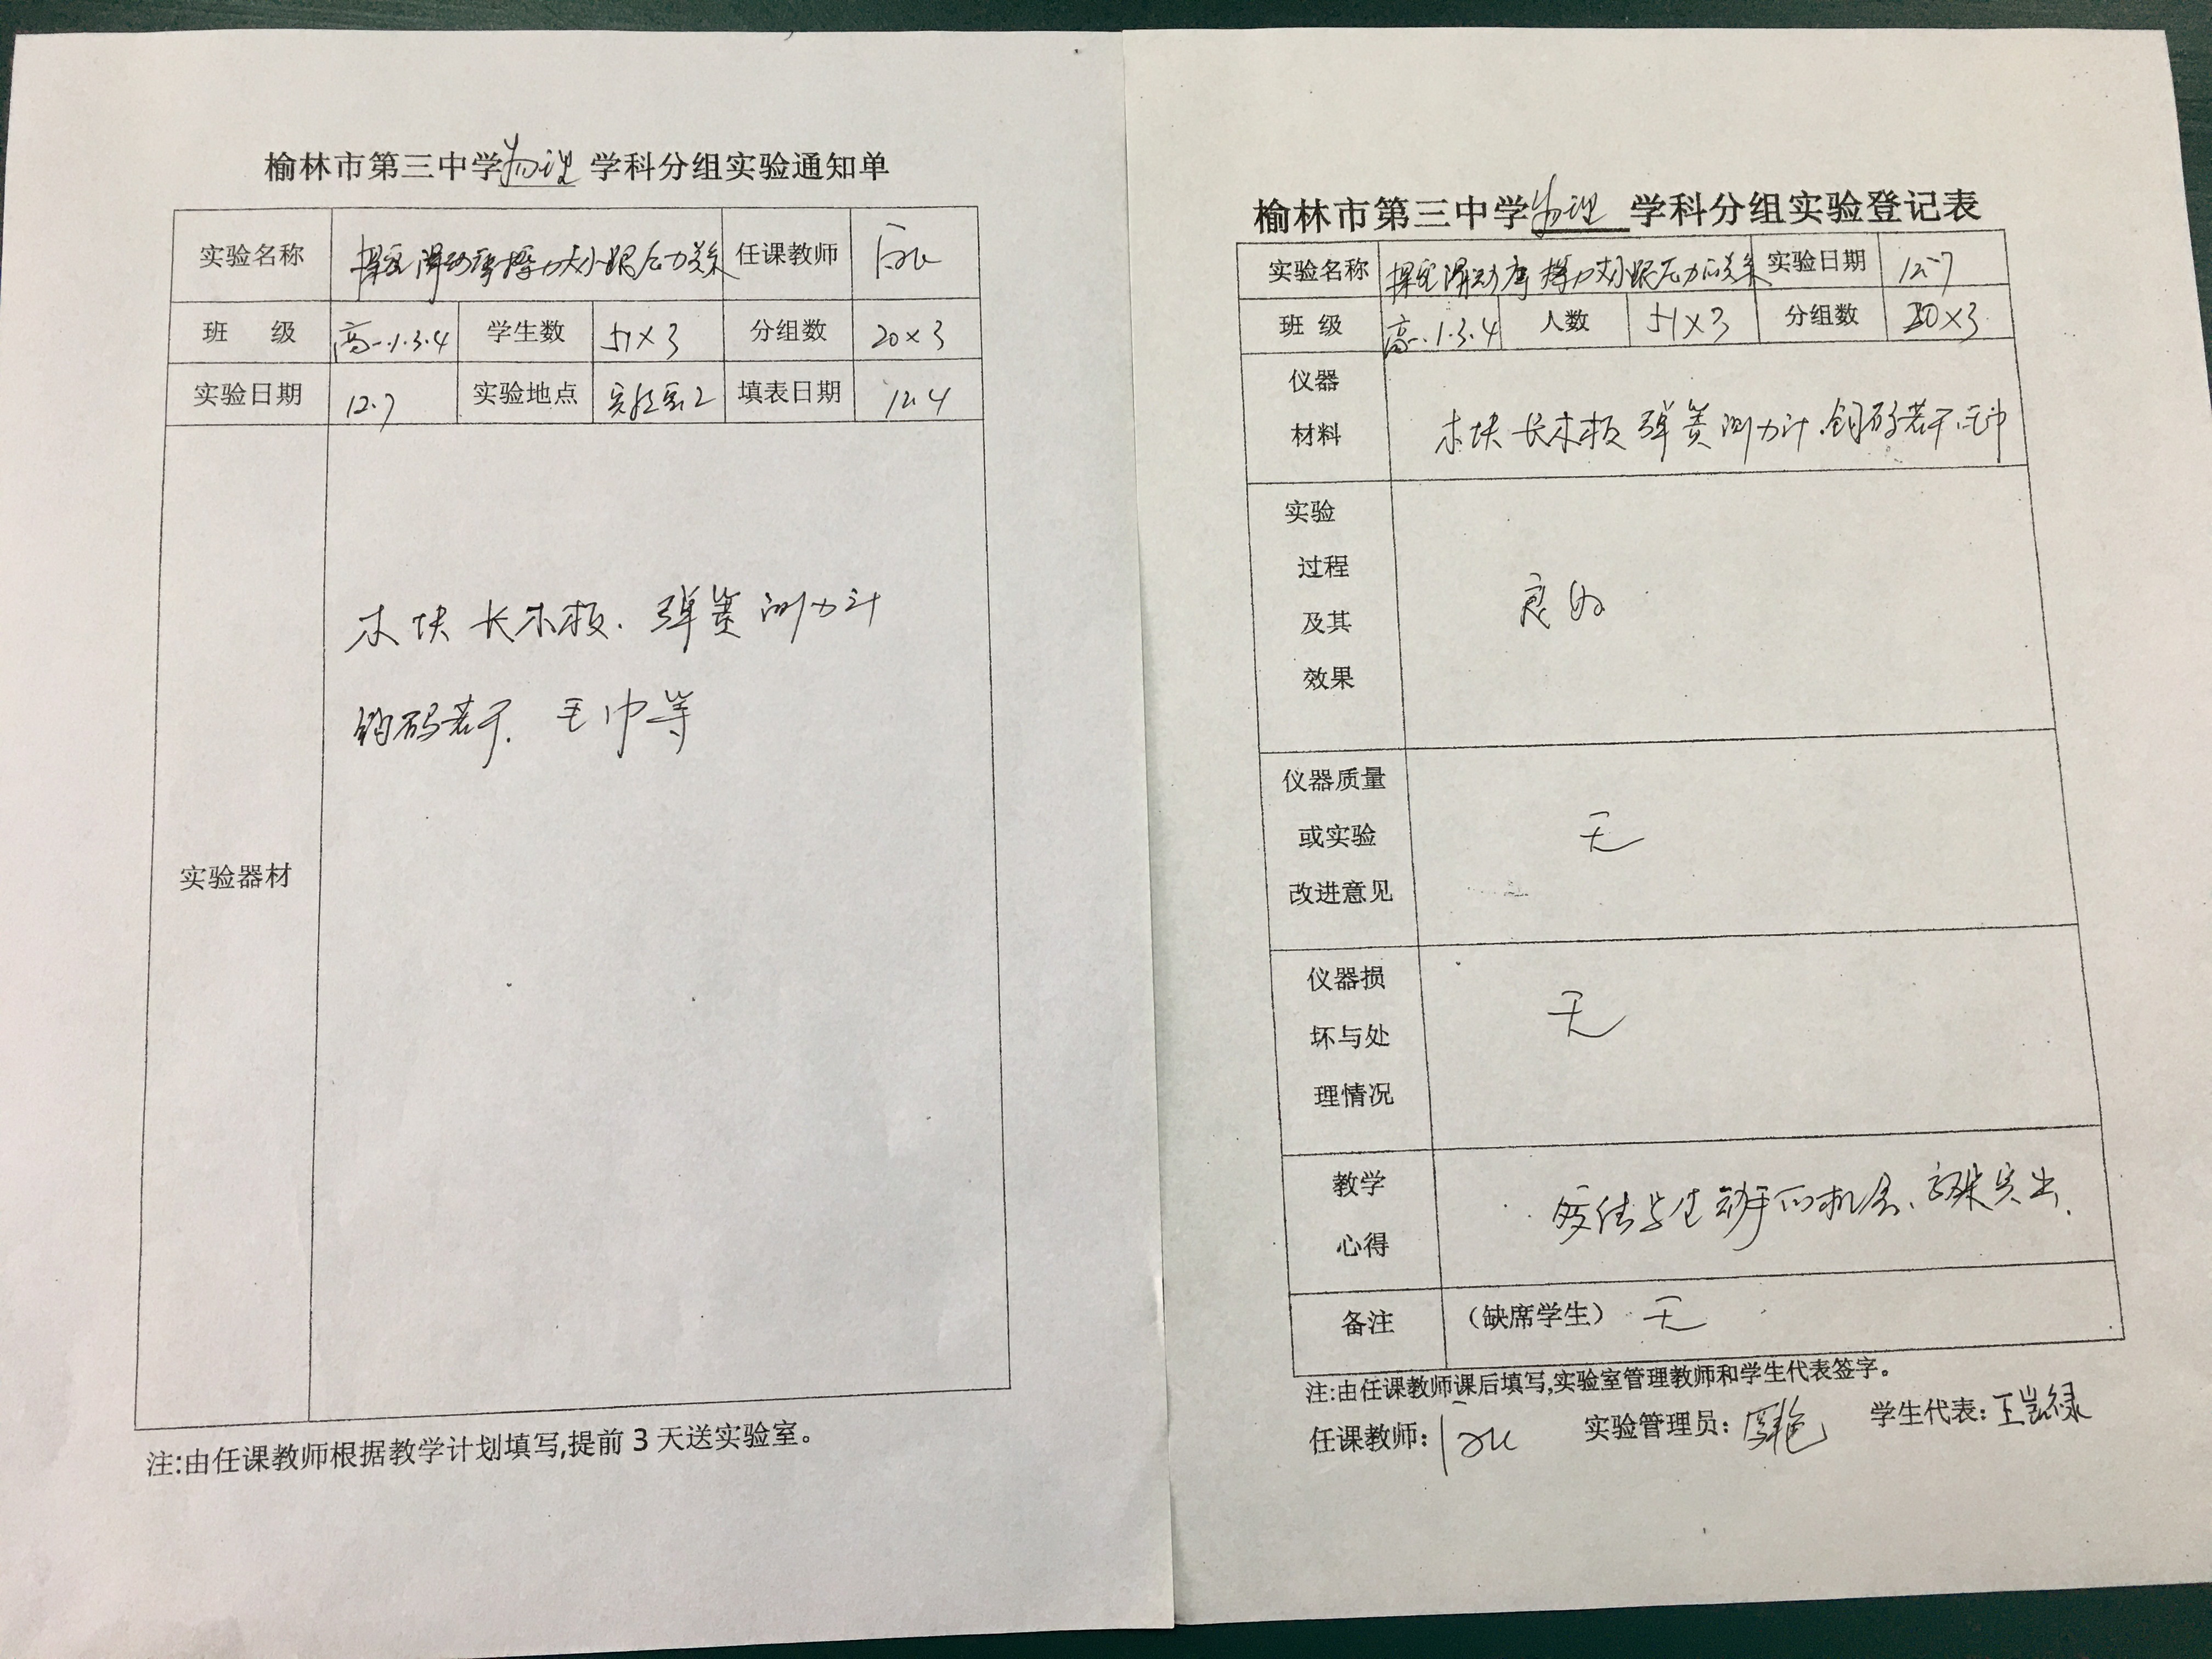 榆林市第三中学物理 学科分组实验通知单
实验名称 探究滑动摩擦力大小跟压力关系 任课教师
班 级 高一.1.3.4 学生数 51×3 分组数 20×3
实验日期 12.7 实验地点 实验室2 填表日期 12.4
实验器材
木块 长木板. 弹簧测力计
钩码若干. 毛巾等
注:由任课教师根据教学计划填写,提前 3 天送实验室。
榆林市第三中学物理 学科分组实验登记表
实验名称 探究滑动摩擦力大小跟压力的关系 实验日期 12.7
班 级 高一.1.3.4 人数 51×3 分组数 20×3
仪器
材料
木块 长木板 弹簧测力计.钩码若干.毛巾
实验
过程
及其
效果
良好
仪器质量
或实验
改进意见
无
仪器损
坏与处
理情况
无
教学
心得
学生动手的机会、效果突出.
备注 (缺席学生) 无
注:由任课教师课后填写,实验室管理教师和学生代表签字。
任课教师: 实验管理员: 学生代表: